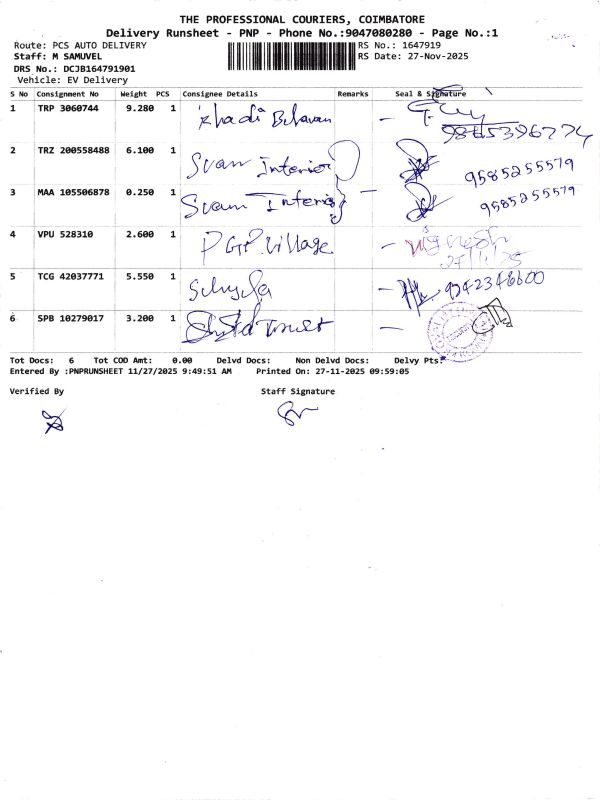 THE PROFESSIONAL COURIERS, COIMBATORE
Delivery Runsheet - PNP - Phone No.:9047080280 - Page No.:1
Route: PCS AUTO DELIVERY RS No.: 1647919
Staff: M SAMUVEL RS Date: 27-Nov-2025
DRS No.: DCJB164791901
Vehicle: EV Delivery
S No Consignment No Weight PCS Consignee Details Remarks Seal & Signature
1 TRP 3060744 9.280 1 Khadi Bhavan
2 TRZ 200558488 6.100 1 Svan Interior 9585255579
3 MAA 105506878 0.250 1 Svam Interior 9585255579
4 VPU 528310 2.600 1 PGP. Village Vignesh 27/11/25
5 TCG 42037771 5.550 1 9742346600
6 SPB 10279017 3.200 1
Tot Docs: 6 Tot COD Amt: 0.00 Delvd Docs: Non Delvd Docs: Delvy Pts:
Entered By :PNPRUNSHEET 11/27/2025 9:49:51 AM Printed On: 27-11-2025 09:59:05
Verified By Staff Signature